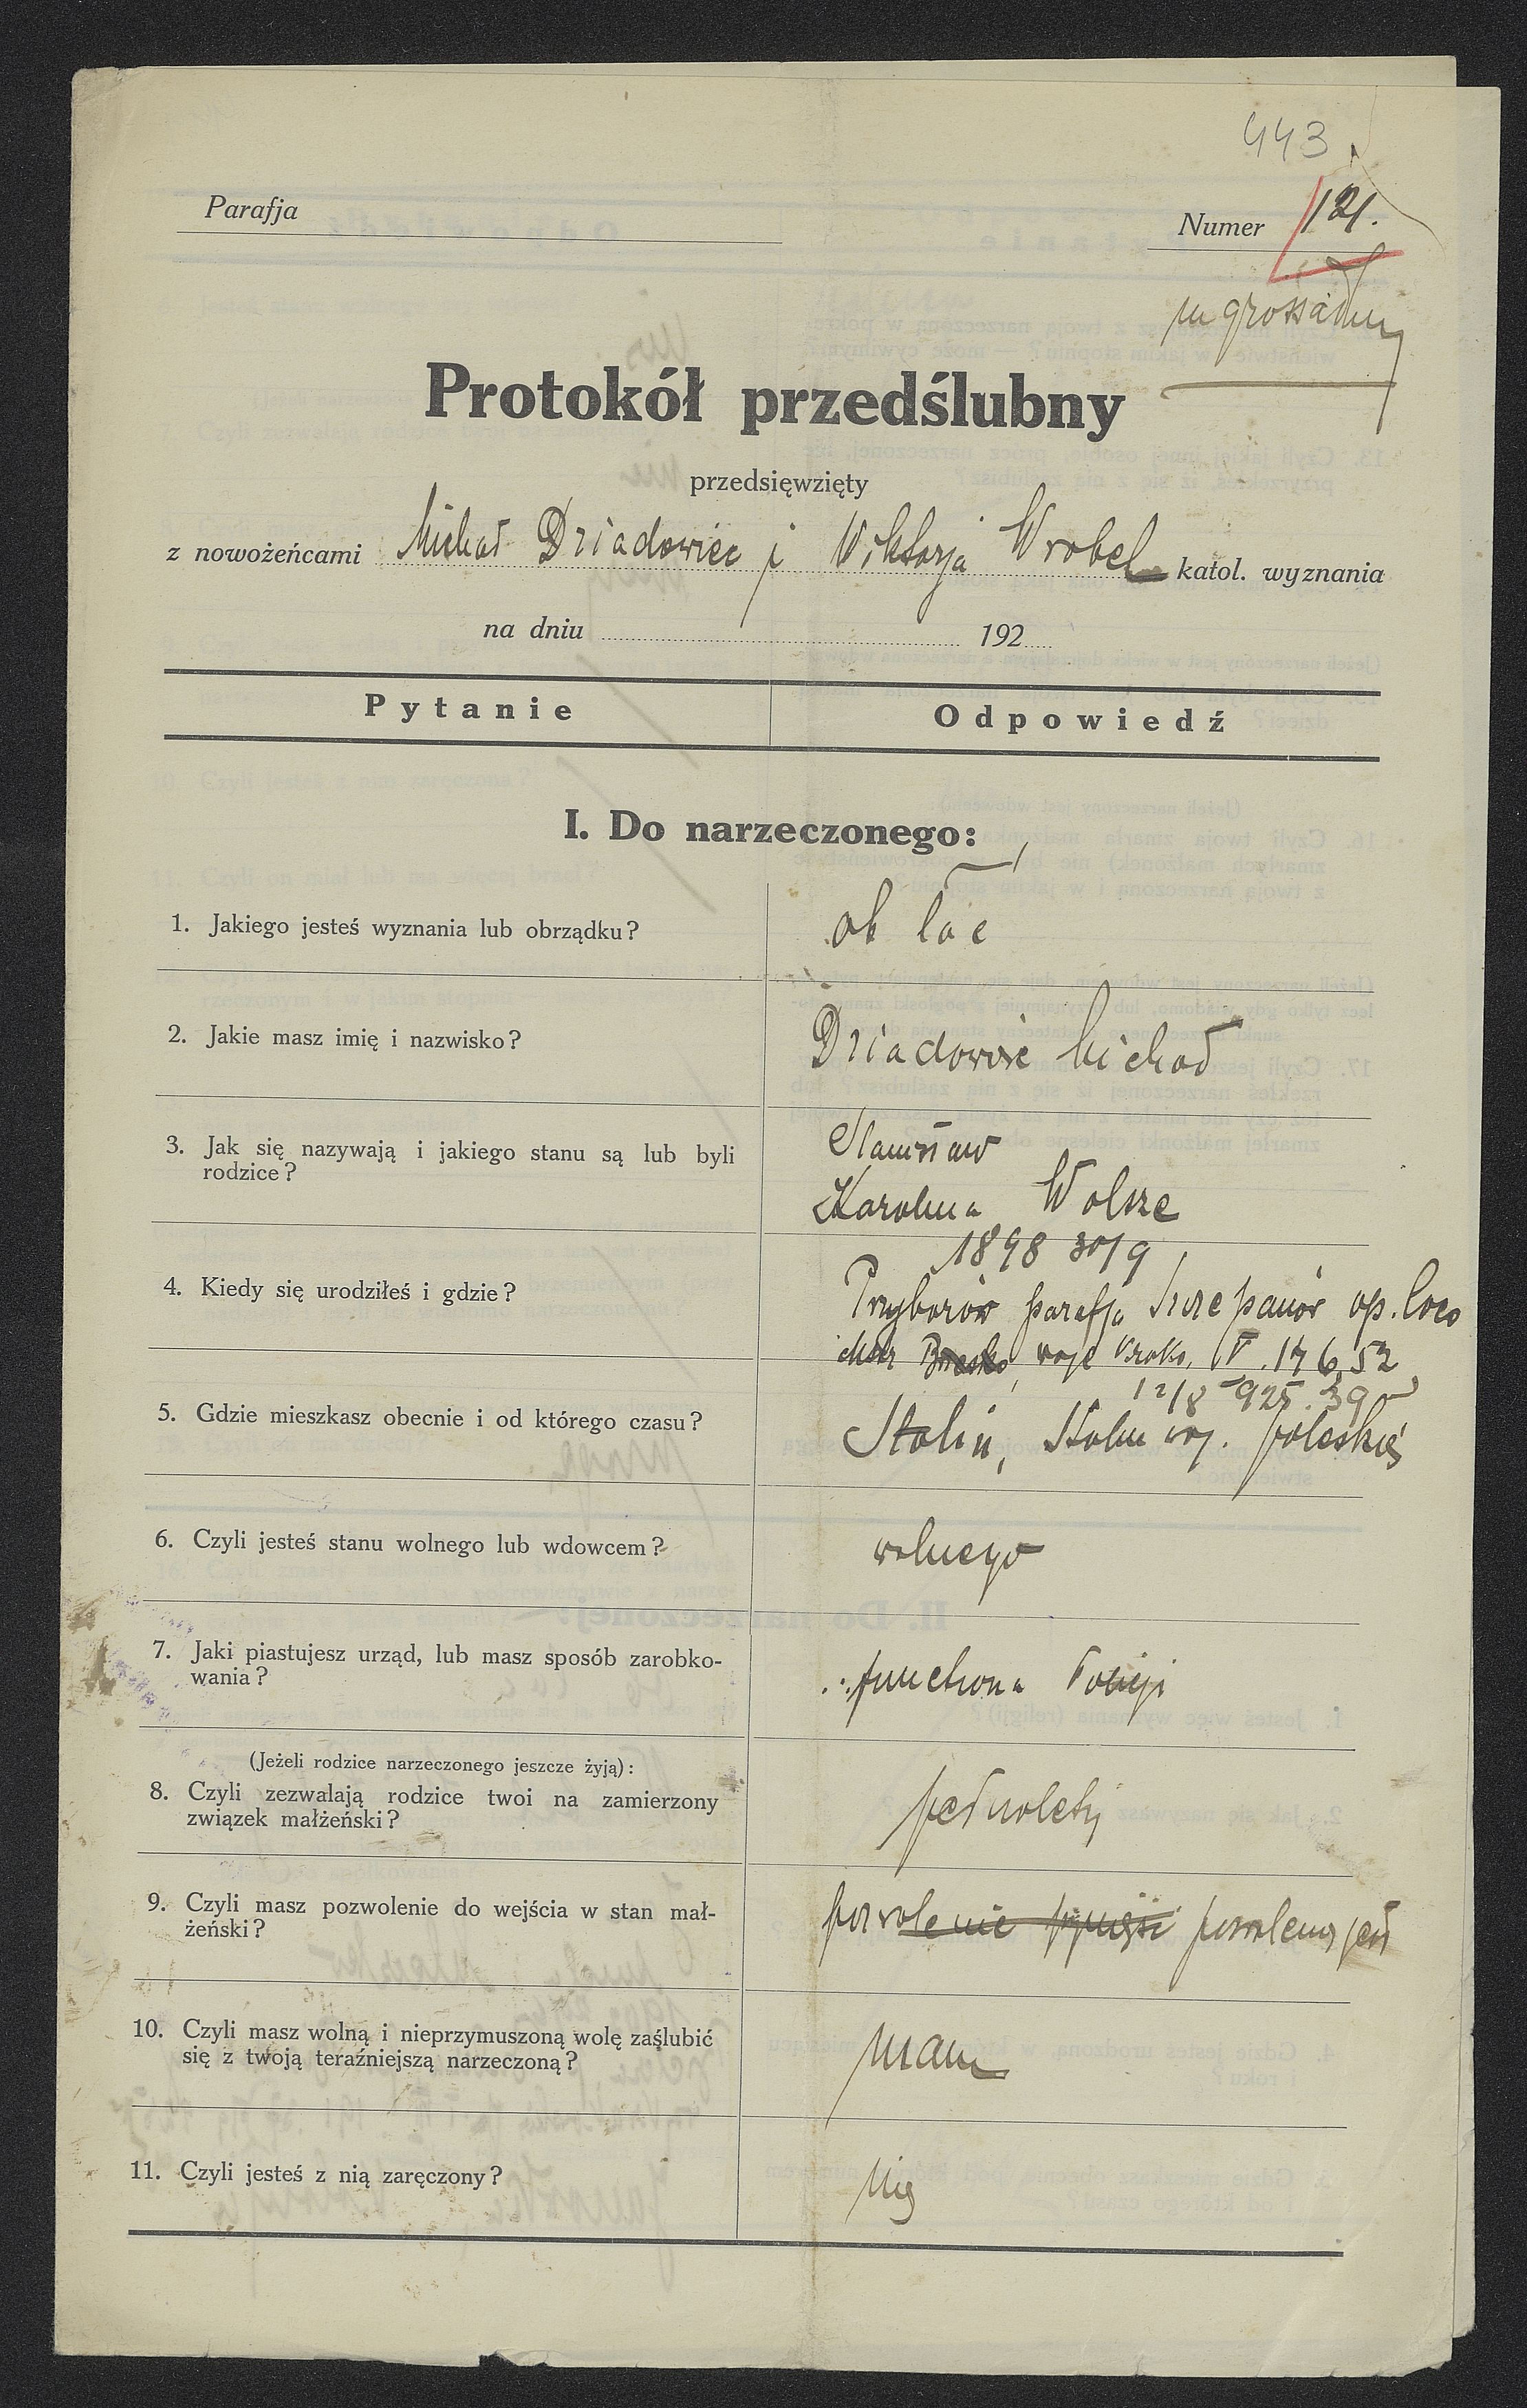 443
Parafja
Numer 121.
Protokół przedślubny
przedsięwzięty
z nowożeńcami Michał Dziadowiec i Wiktorja Wrobel katol. wyznania
na dniu 192
Pytanie Odpowiedź
I. Do narzeczonego:
1. Jakiego jesteś wyznania lub obrządku? ob łac
2. Jakie masz imię i nazwisko? Dziadowiec Michał
3. Jak się nazywają i jakiego stanu są lub byli Stanisław
rodzice? Karolina Wolsze
1898 30/9
4. Kiedy się urodziłeś i gdzie? Przyborów parafja Szczepanów op. loco
Brzesko, woje krako, 176, 52
12/8 925. 39
5. Gdzie mieszkasz obecnie i od którego czasu? Stolin, Stolin woj. poleskie
6. Czyli jesteś stanu wolnego lub wdowcem? wolnego
7. Jaki piastujesz urząd, lub masz sposób zarobko-
wania? Policji
(Jeżeli rodzice narzeczonego jeszcze żyją):
8. Czyli zezwalają rodzice twoi na zamierzony
związek małżeński? pełnoletny
9. Czyli masz pozwolenie do wejścia w stan mał-
żeński? pozwolenie jest
10. Czyli masz wolną i nieprzymuszoną wolę zaślubić
się z twoją teraźniejszą narzeczoną? mam
11. Czyli jesteś z nią zaręczony? Nie